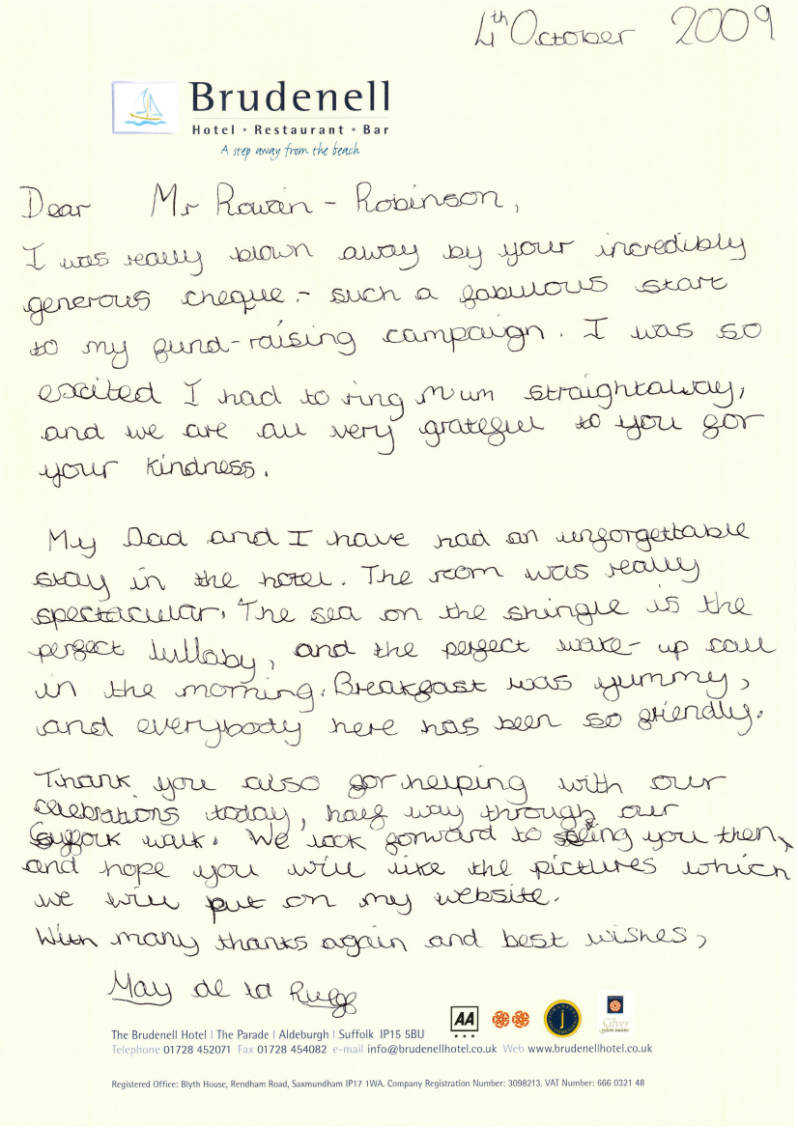 4th October 2009
Brudenell
Hotel • Restaurant • Bar
A step away from the beach
Dear Mr Rowan-Robinson,
I was really blown away by your incredibly
generous cheque - such a fabulous start
to my fund-raising campaign. I was so
excited I had to ring Mum straightaway,
and we are all very grateful to you for
your kindness.
My Dad and I have had an unforgettable
stay in the hotel. The room was really
spectacular. The sea on the shingle is the
perfect lullaby, and the perfect wake-up call
in the morning. Breakfast was yummy,
and everybody here has been so friendly.
Thank you also for helping with our
celebrations today, half way through our
Suffolk walk. We look forward to seeing you then,
and hope you will like the pictures which
we will put on my website.
With many thanks again and best wishes,
May de la Rugg
AA
j
Silver
The Brudenell Hotel | The Parade | Aldeburgh | Suffolk IP15 5BU
Telephone 01728 452071 Fax 01728 454082 e-mail info@brudenellhotel.co.uk Web www.brudenellhotel.co.uk
Registered Office: Blyth House, Rendham Road, Saxmundham IP17 1WA. Company Registration Number: 3098213. VAT Number: 666 0321 48